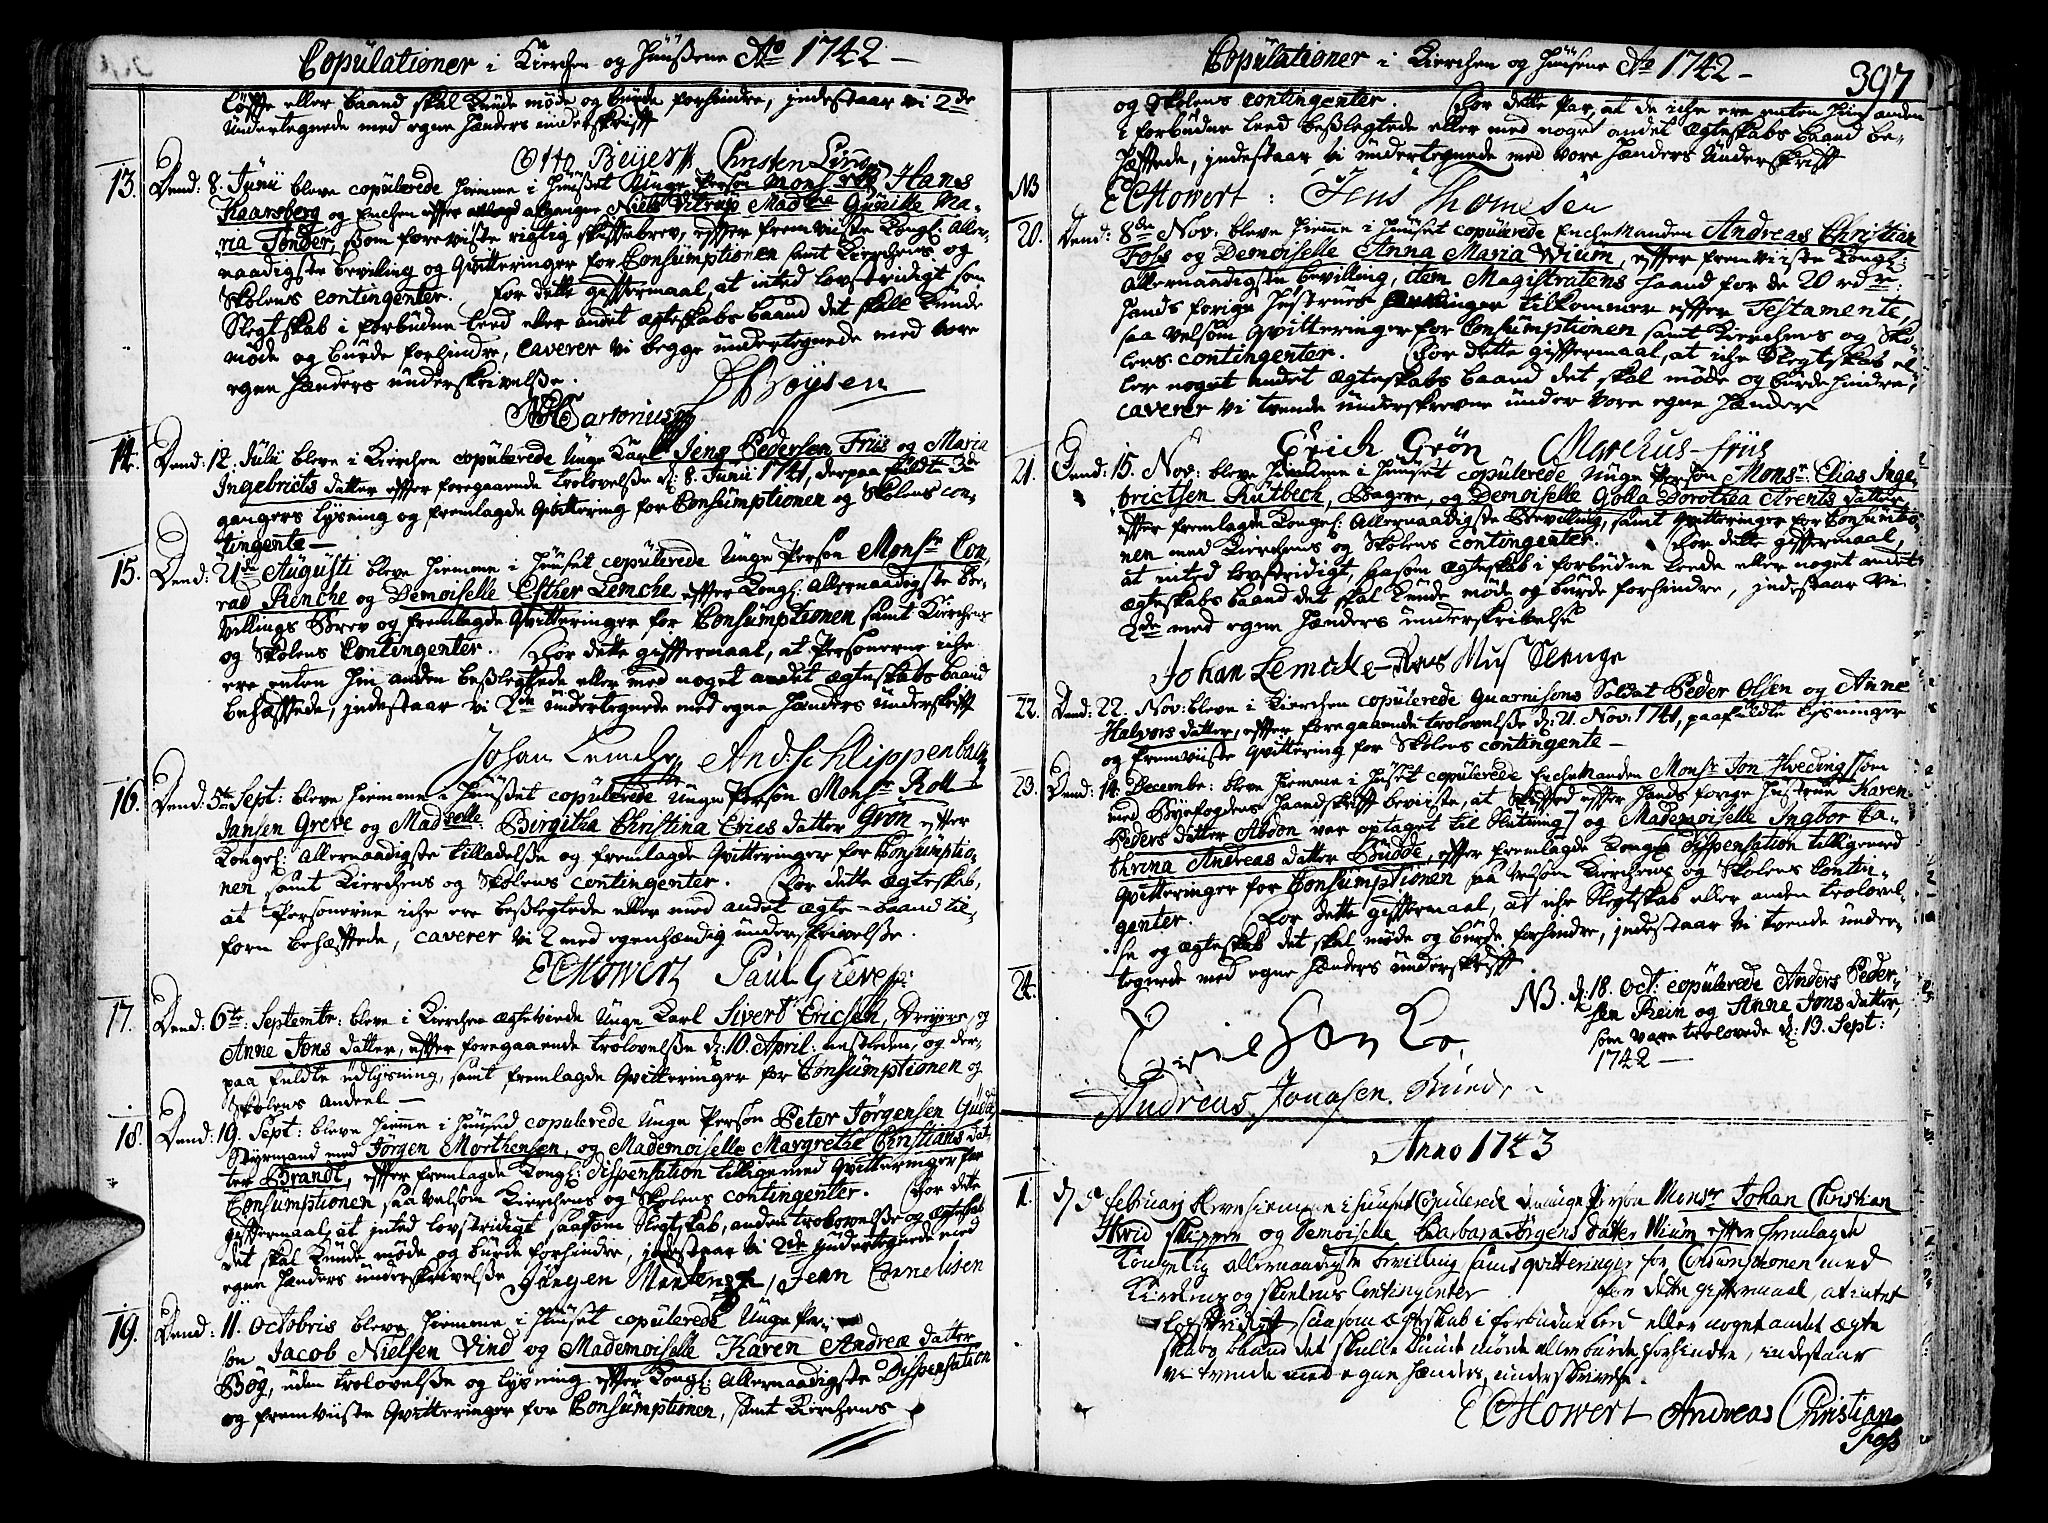 Copulationer i Kierchen og Huußene Ao 1742 –
løffte eller baand skal kunde møde og burde forhindre, indestaar vi 2de
undertegnede med egne hænders underskrifft
Otto Beijer Christen Lind
13. Dend: 8. Junii bleve copulerede hiemme i Huuset Unge Person Monsr Hans
Kaarsberg og Enchen effter afgangne Niels Vitrup Madme Gunille Ma-
ria Tønder, som foreviiste rigtig skifftebrev, effter fremviiste Kongl: Aller-
naadigste bevilling og Qvitteringer for Consumptionen samt Kierchens og
Skolens contingenter. For dette gifftermaal at inted lovstridigt som
Slegtskab i forbudne leed eller andet Ægteskabs baand det skall kunde
møde og burde forhindre, caverer vi begge undertegnede med vore
egne hænders underskrivelße.
Boysen
Sartorius
14. Dend: 12. Julii bleve i Kierchen copulerede Unge Karl Jens Pedersen Friis og Maria
Ingebrigts datter effter foregaaende trolovelße d: 8. Junii 1741, derpaa fuldt 3de
gangers lysning og fremlagde Qvittering for Consumptionen og Skolens con-
tingente –
15. Dend: 21de Augusti bleve hiemme i Huuset copulerede Unge Person Monsr Con-
rad Renche og Demoiselle Esther Lemche effter Kongl: Allernaadigste Be-
villings Brev og fremlagde Qvitteringer for Consumptionen samt Kierchens
og Skolens Contingenter. For dette gifftermaal, at Personerne iche
ere enten hin anden beßlegtede eller med noget andet Ægteskabs baand
behæfftede, indestaar vi 2de undertegnede med egne hænders underskrifft
Johan Lemche And: Schlippenbach
16. Dend: 5te Sept: bleve hiemme i Huuset copulerede Unge Person Monsr Roll
Jansen Greve og Madselle Birgitha Christina Erics datter Grøn effter
Kongl: Allernaadigste tilladelße og fremlagde Qvitteringer for Consumptio-
nen samt Kierchens og Skolens contingenter. For dette Ægteskab,
at Personerne iche ere beßlegtede eller med andet ægte-baand til-
forn behæfftede, caverer vi 2 med egenhændig underskrivelße.
Howert Paul Greve
17. Dend: 6te Septembr: bleve i Kierchen ægteviede Unge Karl Sivert Ericsen, Dreyer, og
Anne Jons datter, effter foregaaende trolovelße d: 10. April: nestleden, og der-
paa fuldte udlysning, samt fremlagde Qvitteringer for Consumptionen og
Skolens andeel –
18. Dend: 19. Sept: bleve hiemme i Huused copulerede Unge Person Peter Jørgensen
Styrmand med Jørgen Morthensen, og Mademoiselle Margrethe Christians dat-
ter Brandt, effter fremlagde Kongl: dispensation tilligemed Qvitteringer for
Consumptionen saavelsom Kierchens og Skolens contingenter. For dette
gifftermaal, at inted lovstridigt saasom Slegtskab, anden trolovelße og ægteskab
det skal kunde møde og burde forhindre, indestaar vi 2de undertegnede med
egne hænders underskrivelße Jørgen Jenn Cornelisen
19. Dend: 11. Octobris bleve hiemme i Huuset copulerede Unge Per-
son Jacob Nielsen Vind og Mademoiselle Karen Andreæ datter
Bøg, uden trolovelße og lysning effter Kongl: Allernaadigste Dispensation
og fremviiste Qvitteringer for Consumptionen, samt Kierchens
Copulationer i Kierchen og Huusene Ao 1742 – 397
og Skolens contingenter. For dette Par, at de iche ere enten hin anden
i forbudne leed beßlegtede eller med noget andet Ægteskabs baand be-
hæfftede, indestaar vi undertegnede med vore hænders Underskrifft
NB Howert: Jens Thomesen
20. Dend: 8de Nov: bleve hiemme i Huuset copulerede Enchemanden Andreas Christian
Foss og Demoiselle Anna Maria Wium, effter fremviiste Kongl:
Allernaadigste bevilling, dem Magistratens haand for de 20 rdr
hands forige hustrues tilkommer effter Testamente,
saa velsom Qvitteringer for Consumptionen samt Kierchens og Sko-
lens contingenter. For dette gifftermaal, at iche Slegtskab el-
ler noget andet ægteskabs baand det skal møde og burde hindre,
caverer vi tvende underskrevne under vore egne hænder
Erich Grøn Marchus friis
21. Dend: 15. Nov: bleve hiemme i Huuset copulerede Unge Person Monsr Elias Inge-
brictsen Rutbech, Bagere, og Demoiselle Golla Dorothea Arents datter
effter fremlagde Kongel: Allernaadigste Brevilling, samt Qvitteringer for Consumtio-
nen med Kierchens og Skolens contingenter. For dette gifftermaal,
at inted lovstridigt, saasom ægteskab i forbudne leede eller noget andet
ægteskabs baand det skal kunde møde og burde forhindre, indestaar vi
2de med egne hænders underskrivelse
Johan Lemcke
22. Dend: 22. Nov: bleve i Kierchen copulerede Guarnisons Soldat Peder Olsen og Anne
Halvors datter, effter foregaaende trolovelße d: 21. Nov: 1741, paafuldte lysninger
og fremviiste Qvittering for Skolens contingente –
23. Dend: 14. Decembr: bleve hiemme i Huset copulerede Enchemanden Monsr Jon Hveding [som
med Byefogdens haandskrifft beviiste, at Skiffted effter hands forige hustrue Karen
Peders datter Abdon var optaget til Slutning] og Mademoiselle Ingbor Ca-
thrina Andreas datter Budde, effter fremlagde Kongel: dispensation tilligemed
Qvitteringer for Consumptionen saa velsom Kierchens og Skolens Contin-
genter. For dette gifftermaal, at iche Slegtskab eller anden trolovel-
se og ægteskab det skal møde og burde forhindre, indestaar vi tvende under-
tegnede med egne hænders underskrifft
24. NB. d: 18. Oct: copulerede Anders Peder-
sen Rein og Anne Jons datter,
som vare trolovede d: 13. Sept:
1742 –
Andreas Jonasen
Anno 1743
1. d: 5 februarj bleve hiemme i huuset Copulerede Unge Person Monsr Johan Christian
Hvid skipper og Demoiselle Barbara Jørgens datter Wium effter fremlagde
Kongelig allernaadigste bevilling samt qvitteringer for Consumtionen med
Kirchens og skolens Contingenter for dette giftermaal, at intet
lovstridigt saasom ægteskab i forbudne led eller noget andet ægte
skabs baand det skulle kunde møde eller burde forhindre, indestaar
vi tvende med egne hænders underskrivelse.
Howert Andreas Christian
Foss